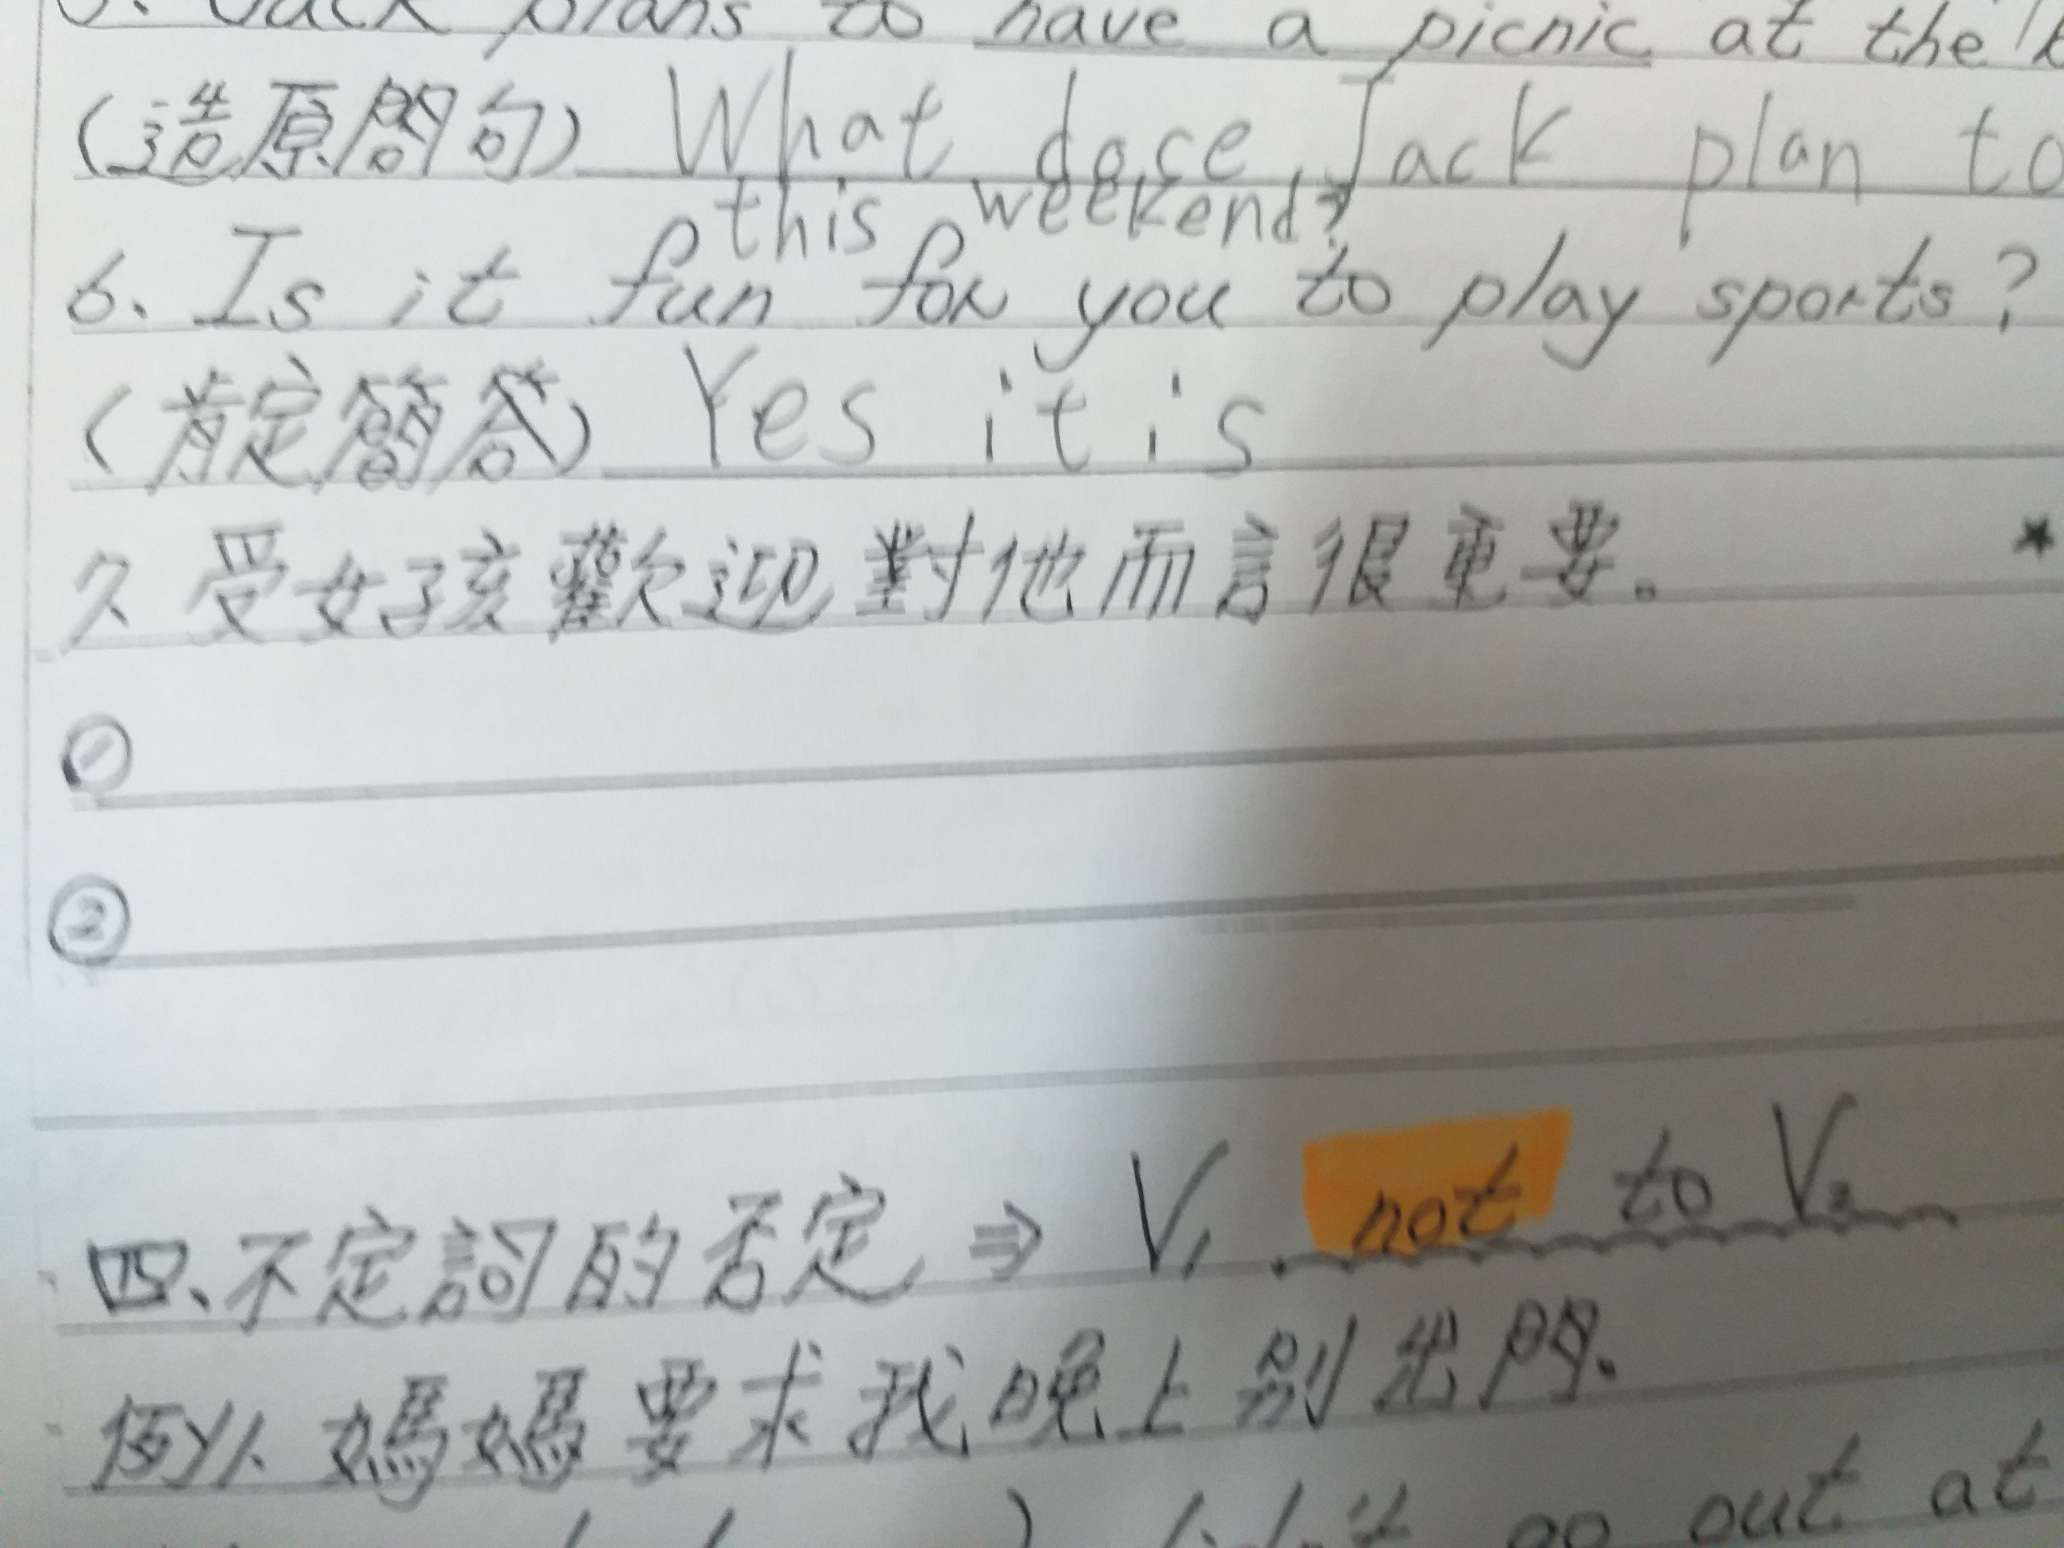 Jack plans to have a picnic at the
(造原問句) What doce Jack plan to
this weekend?
6. Is it fun for you to play sports?
(肯定簡答) Yes it is
7. 受女孩歡迎對他而言很重要。 ★
①
②
四、不定詞的否定 ⇒ V1 not to V2
例1. 媽媽要求我晚上別出門.
go out at